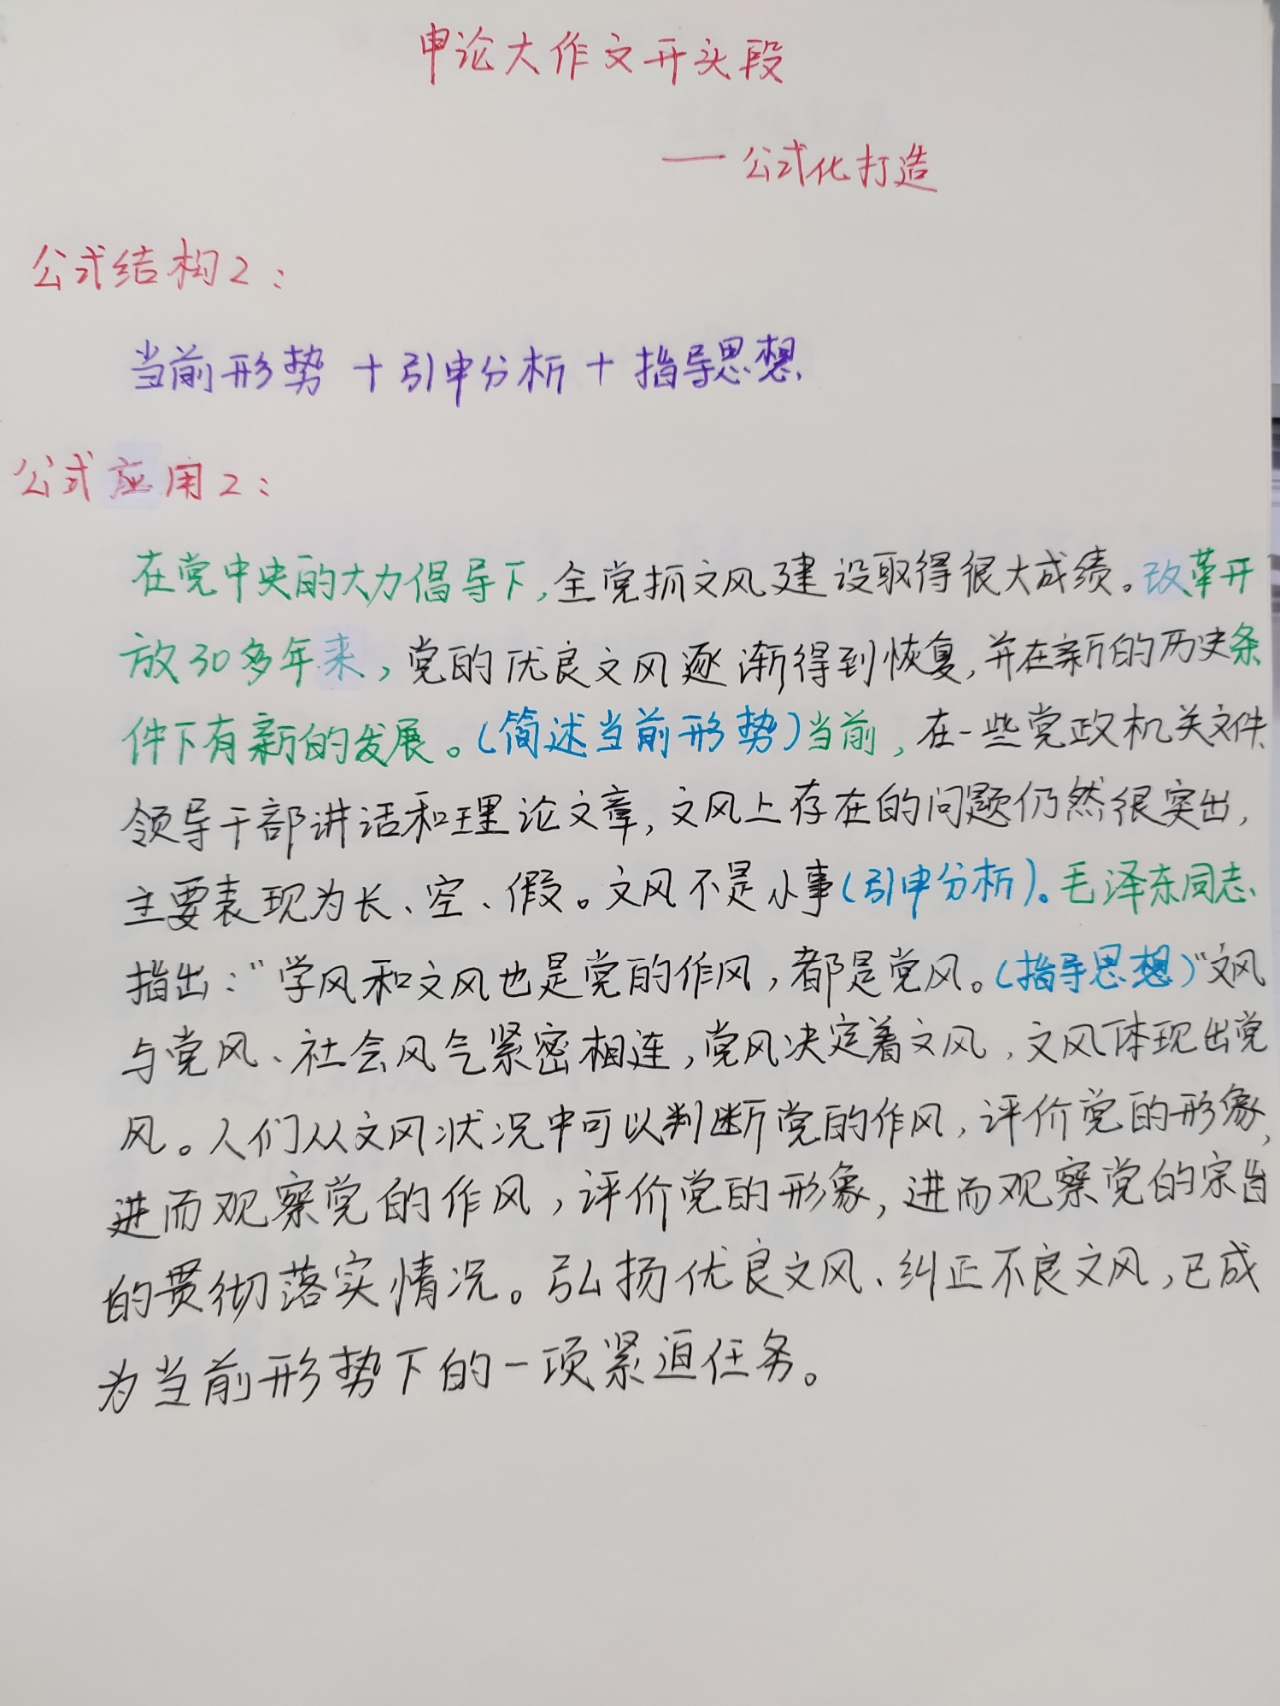 申论大作文开头段
——公式化打造
公式结构2：
当前形势＋引申分析＋指导思想
公式应用2：
在党中央的大力倡导下，全党抓文风建设取得很大成绩。改革开
放30多年来，党的优良文风逐渐得到恢复，并在新的历史条
件下有新的发展。(简述当前形势)当前，在一些党政机关文件
领导干部讲话和理论文章，文风上存在的问题仍然很突出，
主要表现为长、空、假。文风不是小事(引申分析)。毛泽东同志
指出：“学风和文风也是党的作风，都是党风。(指导思想)”文风
与党风、社会风气紧密相连，党风决定着文风，文风体现出党
风。人们从文风状况中可以判断党的作风，评价党的形象，
进而观察党的作风，评价党的形象，进而观察党的宗旨
的贯彻落实情况。弘扬优良文风、纠正不良文风，已成
为当前形势下的一项紧迫任务。